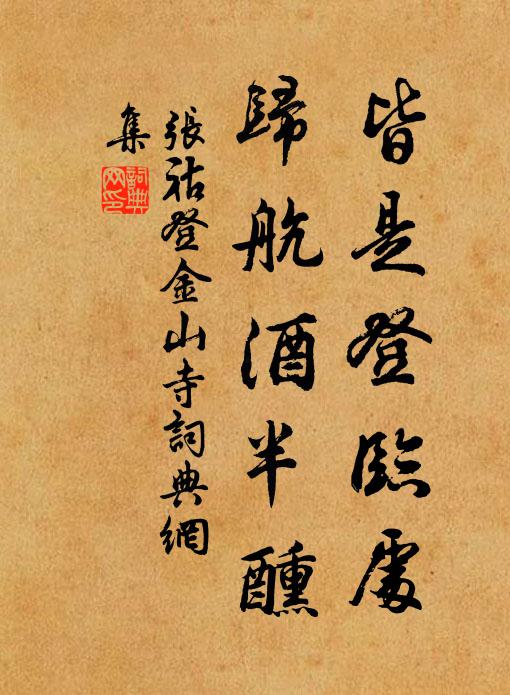 皆是登臨處
歸航酒半醺
張祜登金山寺詞典網
集
詞典
网印